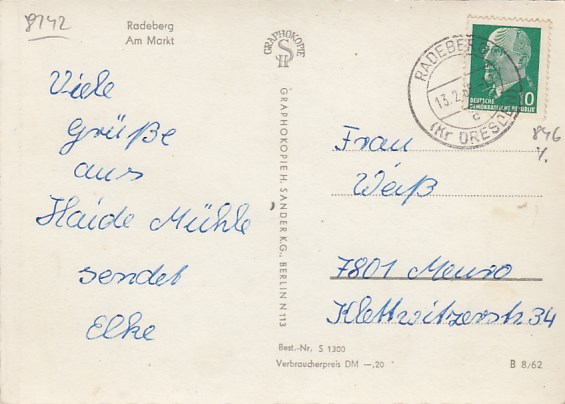 8742
Radeberg
Am Markt
Viele
Grüße
aus
Haide Mühle
sendet
Elke
GRAPHOKOPIE
SH
GRAPHOKOPIE H. SANDER K.G., BERLIN N 113
RADEBERG
13.2.6
c
(Kr DRESD
10
DEUTSCHE
DEMOKRATISCHE REPUBLIK
846
Frau
Weiß
7801 Meuro
Klettwitzerstr. 34
Best.-Nr. S 1300
Verbraucherpreis DM —.20
B 8/62